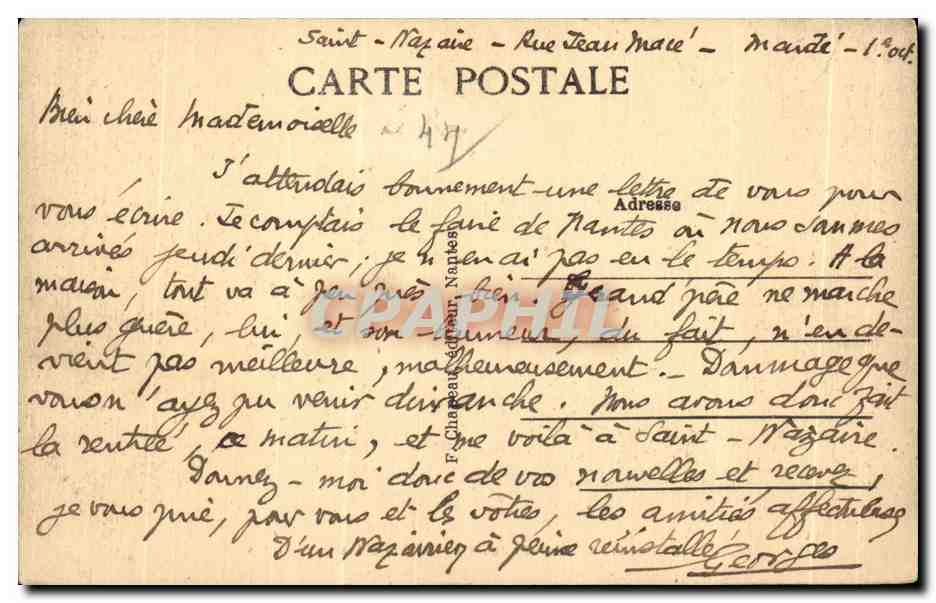 Saint-Nazaire - Rue Jean Macé - Mardi - 1er oct.
CARTE POSTALE
Bien chère Mademoiselle 47
J'attendais bonnement une lettre de vous pour
Adresse
vous écrire. Je comptais le faire de Nantes où nous sommes
arrivés jeudi dernier; je n'en ai pas eu le temps. A la
maison, tout va à peu près bien. Grand père ne marche
plus guère, lui, et son humeur, du fait, n'en de-
vient pas meilleure, malheureusement. - Dommage que
vous n'ayez pu venir dimanche. Nous avons donc fait
la rentrée, ce matin, et me voilà à Saint-Nazaire.
Donnez-moi donc de vos nouvelles et recevez,
je vous prie, pour vous et les vôtres, les amitiés affectueuses
D'un Nazairien à peine réinstallé, Georges
F. Chapeau, éditeur, Nantes
CPAPHIL